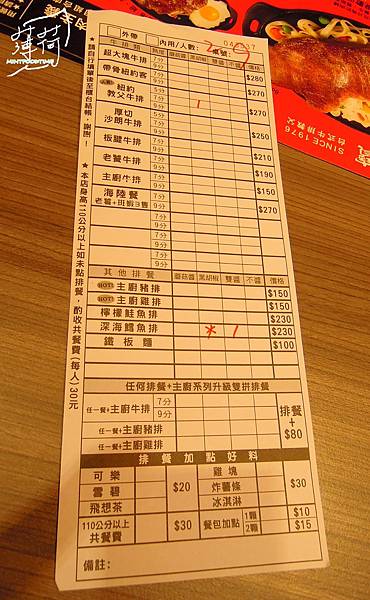 薄荷
MINTFOODTIME
SINCE 1976
台式牛排教父
外帶 內用/人數: 2 桌號:
牛排類 熟度 蘑菇醬 黑胡椒 雙醬 不醬 價格
超大塊牛排 7分 9分 $280
帶骨紐約客 7分 9分 $270
紐約教父牛排 7分 9分 1 $270
厚切沙朗牛排 7分 9分 $250
板腱牛排 7分 9分 $210
老饕牛排 7分 9分 $190
主廚牛排 7分 9分 $150
海陸餐 7分 9分 $270
7分
9分
7分
9分
其他排餐 蘑菇醬 黑胡椒 雙醬 不醬 價格
HOT! 主廚豬排 $150
HOT! 主廚雞排 $150
檸檬鮭魚排 $230
深海鱈魚排 1 $230
鐵板麵 $100
任何排餐+主廚系列升級雙拼排餐
任一餐+主廚牛排 7分 9分
任一餐+主廚豬排
任一餐+主廚雞排
排餐+$80
排餐加點好料
可樂 雞塊
雪碧 $20 炸薯條 $30
飛想茶 冰淇淋
110公分以上共餐費 $30 餐包加點 1顆 $10 2顆 $15
備註:
★請自行填單後至櫃台結帳,謝謝!
★本店身高110公分以上如未點排餐,酌收共餐費(每人)30元